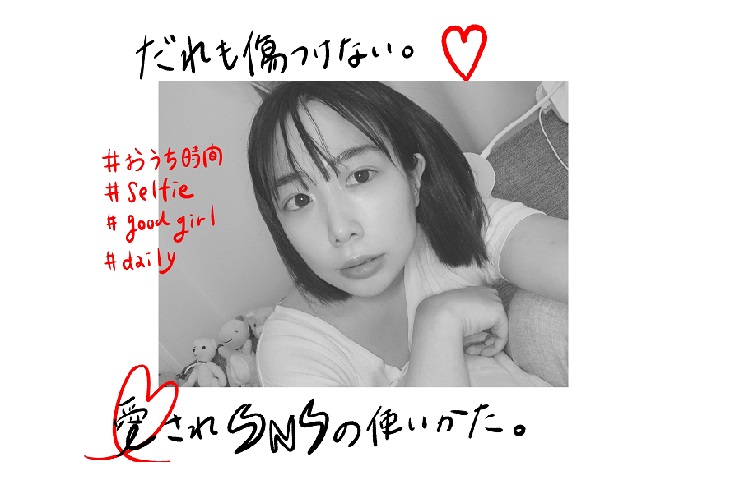 だれも傷つけない。
#おうち時間
#selfie
#good girl
#daily
愛されSNSの使いかた。